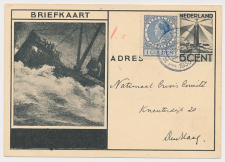 BRIEFKAART
NEDERLAND
ADRES
5 CENT
Nationaal Crisis Comité
Kneuterdijk 20
Den Haag